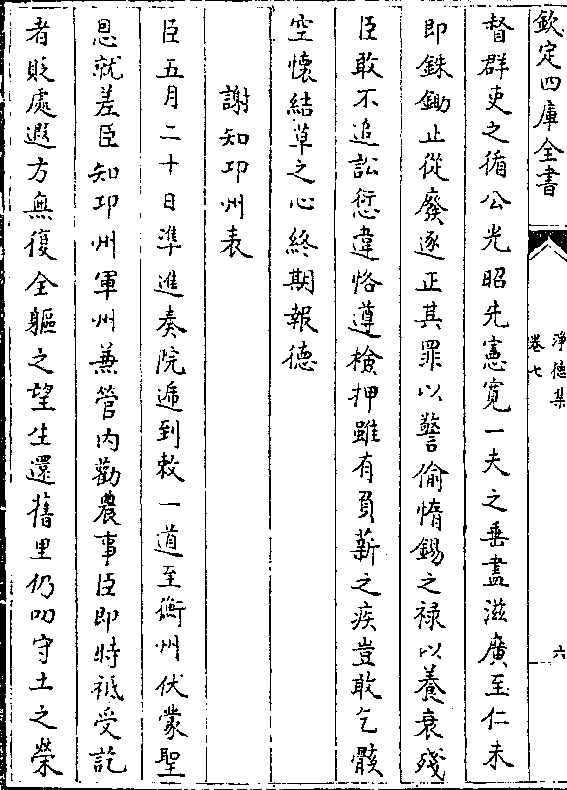 欽定四庫全書
淨德集
卷七
六
督群吏之循公光昭先憲寬一夫之垂盡滋廣至仁未
即銖鋤止從廢逐正其罪以警偷惰錫之祿以養衰殘
臣敢不追訟愆違恪遵檢押雖有負薪之疾豈敢乞骸
空懷結草之心終期報德
謝知邛州表
臣五月二十日準進奏院遞到敕一道至衡州伏蒙聖
恩就差臣知邛州軍州兼管内勸農事臣即時祗受訖
者貶處遐方無復全軀之望生還舊里仍叨守土之榮